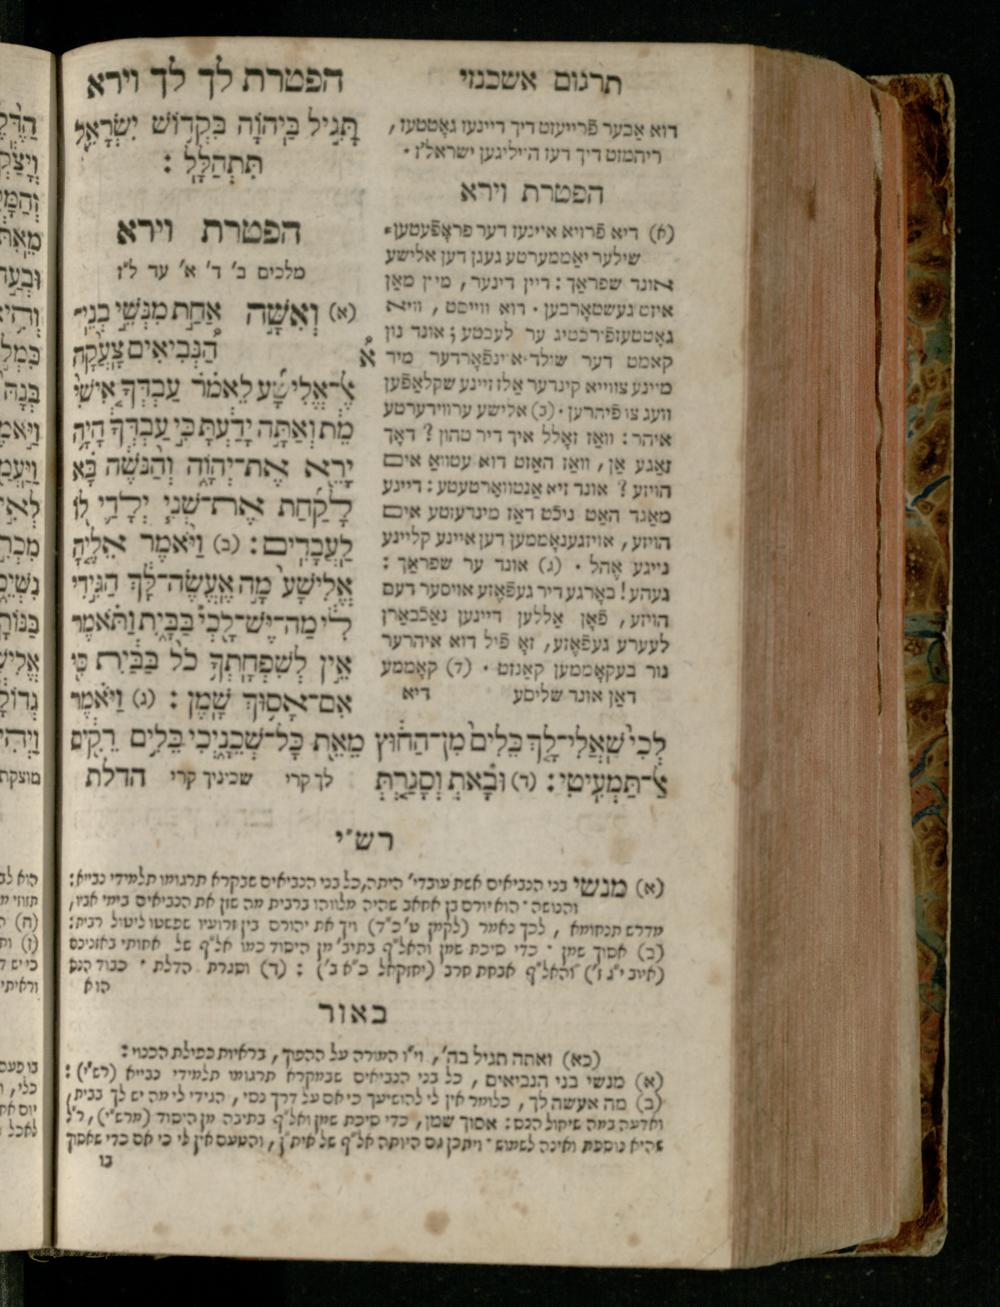 הפטרת לך לך וירא
תָּגִיל בַּיהוָֹה בִּקְדוֹשׁ יִשְׂרָאֵל
תִּתְהַלָּל :
הפטרת וירא
מלכים ב' ד' א' עד ל"ז
(א) וְאִשָּׁה אַחַת מִנְּשֵׁי בְנֵי־
הַנְּבִיאִים צָעֲקָה
אֶל־אֱלִישָׁע לֵאמֹר עַבְדְּךָ אִישִׁי
מֵת וְאַתָּה יָדַעְתָּ כִּי עַבְדְּךָ הָיָה
יָרֵא אֶת־יְהוָֹה וְהַנֹּשֶׁה בָּא
לָקַחַת אֶת־שְׁנֵי יְלָדַי לוֹ
לַעֲבָדִים : (ב) וַיֹּאמֶר אֵלֶיהָ
אֱלִישָׁע מָה אֶעֱשֶׂה־לָּךְ הַגִּידִי
לִי מַה־יֶּשׁ־לָכְי בַּבָּיִת וַתֹּאמֶר
אֵין לְשִׁפְחָתְךָ כֹל בַּבַּיִת כִּי
אִם־אָסוּךְ שָׁמֶן : (ג) וַיֹּאמֶר
לְכִי שַׁאֲלִי־לָךְ כֵּלִים מִן־הַחוּץ מֵאֵת כָּל־שְׁכֵנָיְכִי כֵּלִים רֵקִים
אַל־תַּמְעִיטִי : (ד) וּבָאת וְסָגַרְתְּ
לך קרי שכיניך קרי הדלת
תרגום אשכנזי
דוא אבער פֿרייעזט דיך דיינעז גאָטטעז,
ריהמזט דיך דעז הייליגען ישראל'ז .
הפטרת וירא
(א) דיא פֿרויא איינעז דער פראָפֿעטען־
שילער יאַממערטע געגן דען אלישע
אונד שפראַך : דיין דינער, מיין מאַן
איזט געשטאָרבען . דוא ווייסט, וויא
גאָטטעזפֿירכטיג ער לעבטע ; אונד נון
קאמט דער שולד־איינפֿאָרדער מיר
מיינע צווייא קינדער אַלז זיינע שקלאַפֿען
וועג צו פֿיהרען . (ב) אלישע ערווידערטע
איהר : וואז זאָלל איך דיר טהון ? דאָך
זאַגע אָן, וואז האַזט דוא עטוואַ אים
הויזע ? אונד זיא אַנטוואָרטעטע : דיינע
מאַגד האַט ניכֿט דאז מינדעזטע אים
הויזע, אויזגענאָממען דען איינע קליינע
נייגע אָהל . (ג) אונד ער שפראַך :
געהע ! באָרגע דיר געפֿאֶזע אויסער דעם
הויזע, פֿאָן אַללען דיינען נאַכֿבאַרן
לעערע געפֿאֶזע, זאָ פֿיל דוא איהרער
נור בעקאָממען קאַנזט . (ד) קאָממע
דאַן אונד שליסע דיא
רש"י
(א) מנשי בני הנביאים אשת עובדי' היתה, כל בני הנביאים שבקרא תרגומו תלמידי נבייא :
והנושה . הוא יורם בן אחאב שהיה מלווהו ברבית מה שזן את הנביאים בימי אביו,
מדרש תנחומא, לכך נאמר (לקמן ט' כ"ד) ויך את יהורם בין זרועיו שפשטו ליטול רבית :
(ב) אסוך שמן . כדי סיכת שמן והאל"ף בתיב' מן היסוד כמו אל"ף של אחותי באזניכם
(איוב י"ג ז') והאל"ף אבחת חרב (יחזקאל כ"א ב') : (ד) וסגרת הדלת . כבוד הנס
הוא
באור
(כא) ואתה תגיל בה', וי"ו המורה על ההפוך, בראיות כפילת הכנוי :
(א) מנשי בני הנביאים, כל בני הנביאים שבמקרא תרגומו תלמידי נבייא (רש"י) :
(ב) מה אעשה לך, כלומר אין לי להושיעך כי אם על דרך נסי, הגידי לי מה יש לך בבית,
ואדעה במה שיקול הנס : אסוך שמן, כדי סיכת שמן ואל"ף בתיבה מן היסוד (מרש"י), ר"ל
שהיא נוספת ואינה לשמוש . ויתכן גם היותה אל"ף של אית"ן, והטעם אין לי כי אם כדי שאסוך
בו